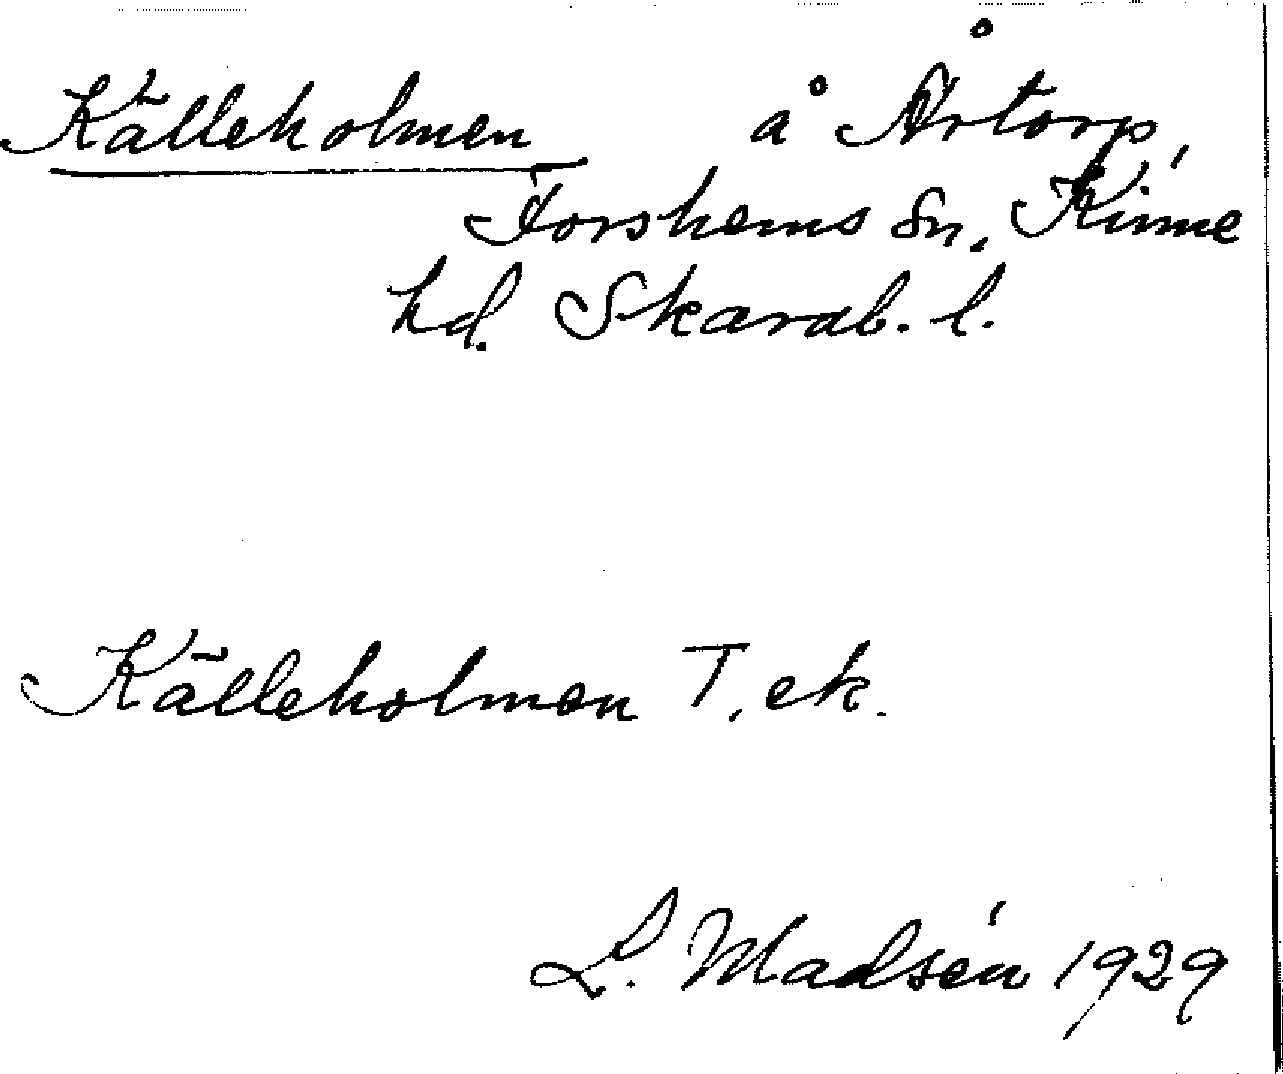 Källeholmen å Årtorp,
Forshems Sn, Kinne
hd. Skarab. l.
Källeholmen T. ek.
L. Madsén 1929